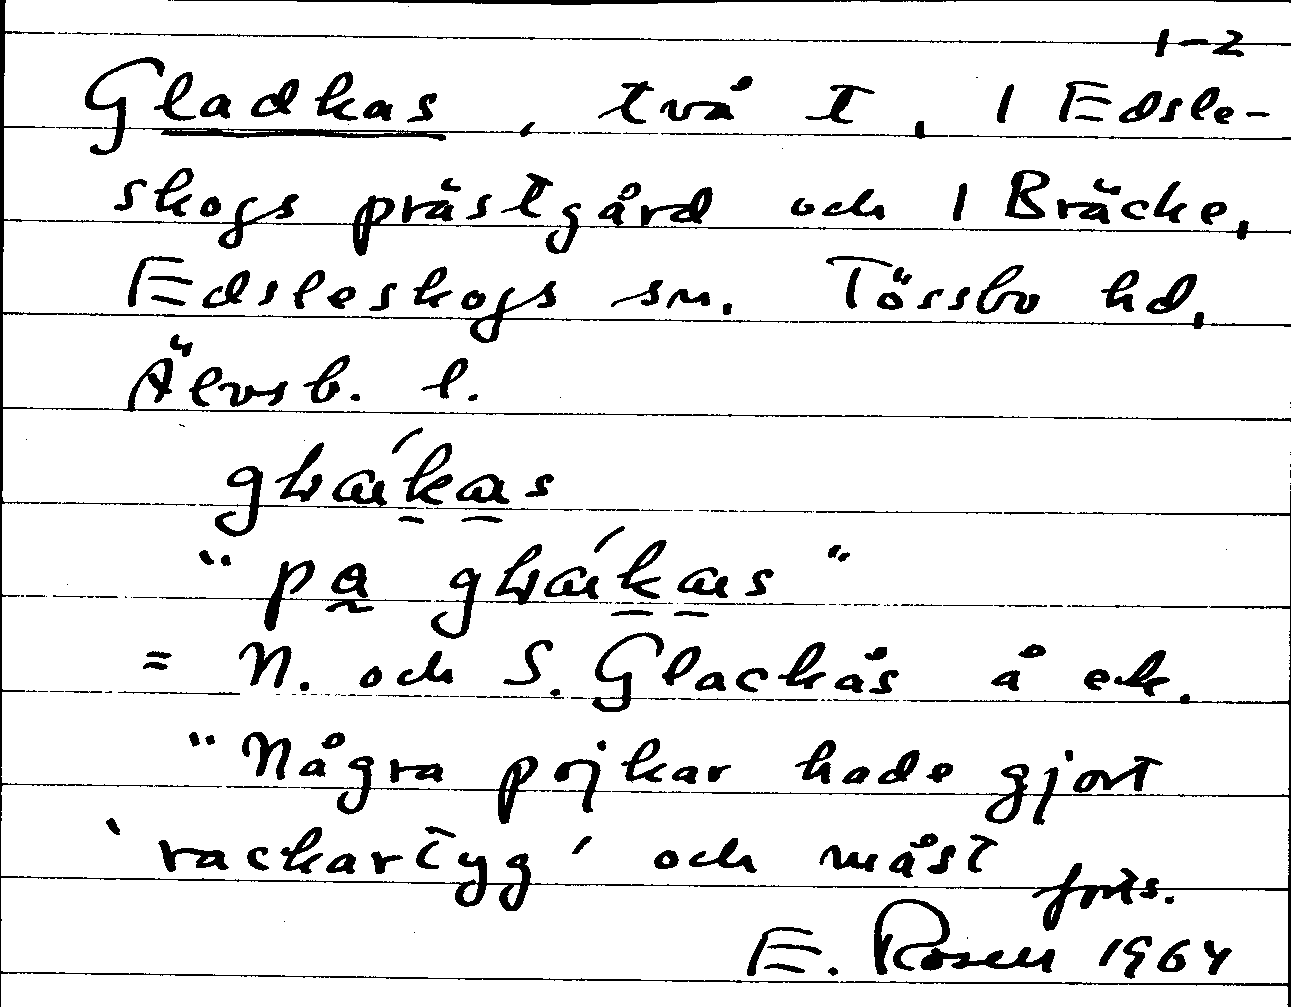 1-2
Gladkas, två t, 1 Edsle-
skogs prästgård och 1 Bräcke,
Edsleskogs sn. Tössbo hd,
Älvsb. l.
= N. och S. Glackås å ek.
"Några pojkar hade gjort
'rackartyg' och måst
forts.
E. Rosell 1964